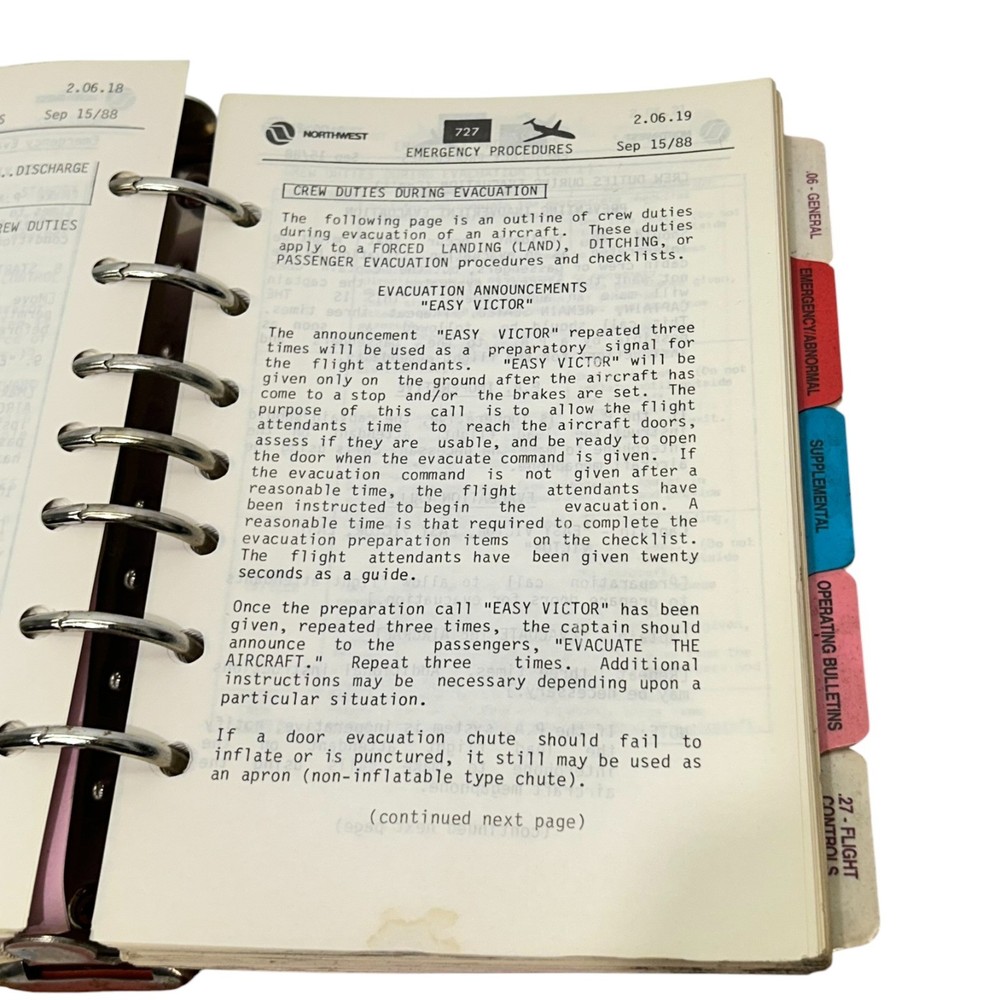 2.06.18
Sep 15/88
..DISCHARGE
REW DUTIES
NORTHWEST
727
2.06.19
EMERGENCY PROCEDURES
Sep 15/88
CREW DUTIES DURING EVACUATION
The following page is an outline of crew duties
during evacuation of an aircraft. These duties
apply to a FORCED LANDING (LAND), DITCHING, or
PASSENGER EVACUATION procedures and checklists.
EVACUATION ANNOUNCEMENTS
"EASY VICTOR"
The announcement "EASY VICTOR" repeated three
times will be used as a preparatory signal for
the flight attendants. "EASY VICTOR" will be
given only on the ground after the aircraft has
come to a stop and/or the brakes are set. The
purpose of this call is to allow the flight
attendants time to reach the aircraft doors,
assess if they are usable, and be ready to open
the door when the evacuate command is given. If
the evacuation command is not given after a
reasonable time, the flight attendants have
been instructed to begin the evacuation. A
reasonable time is that required to complete the
evacuation preparation items on the checklist.
The flight attendants have been given twenty
seconds as a guide.
Once the preparation call "EASY VICTOR" has been
given, repeated three times, the captain should
announce to the passengers, "EVACUATE THE
AIRCRAFT." Repeat three times. Additional
instructions may be necessary depending upon a
particular situation.
If a door evacuation chute should fail to
inflate or is punctured, it still may be used as
an apron (non-inflatable type chute).
(continued next page)
.06 - GENERAL
EMERGENCY/ABNORMAL
SUPPLEMENTAL
OPERATING BULLETINS
.27 - FLIGHT
CONTROLS